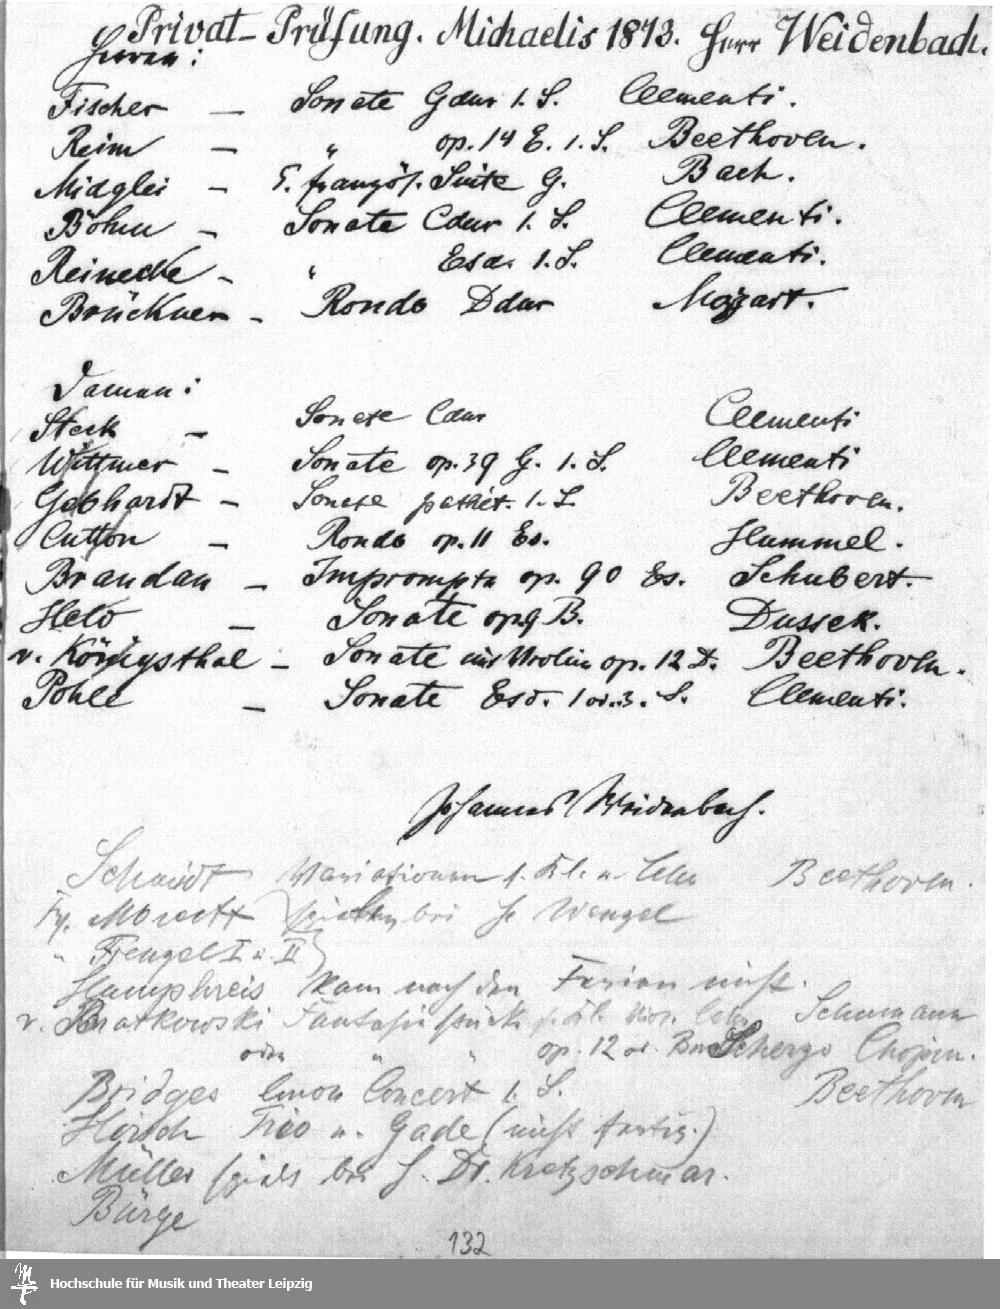 Privat-Prüfung. Michaelis 1873. Herr Weidenbach.
Herren:
Fischer — Sonate Gdur 1. S. Clementi.
Reim — " op. 14 E. 1. S. Beethoven.
Midglei — 5. französ. Suite G. Bach.
Böhm — Sonate Cdur 1. S. Clementi.
Reinecke — " Esd. 1. S. Clementi.
Brückner — Rondo Ddur Mozart.
Damen:
Steck — Sonate Cdur Clementi
Wittmer — Sonate op. 39 G. 1. S. Clementi
Gebhardt — Sonate pathét. 1. S. Beethoven.
Cutton — Rondo op. 11 Es. Hummel.
Brandau — Impromptu op. 90 Es. Schubert.
Held — Sonate op. 9 B. Dussek.
v. Königsthal — Sonate mit Violine op. 12 D. Beethoven.
Pohle — Sonate Esd. 1 od. 3. S. Clementi.
Johannes Weidenbach.
Schmidt Variationen f. Kl. u. Cello Beethoven.
Frl. Albrecht spielen bei H. Wenzel
" Frengel I u. II
Humphreis kam nach den Ferien nicht.
v. Fantasiestücke Schumann
oder " " op. 12 od. Scherzo Chopin.
Bridges Cmoll Concert 1. S. Beethoven
Hirsch Trio v. Gade (nicht fertig.)
Müller spielt bei H. Dr. Kretzschmar.
Bürge
132
Hochschule für Musik und Theater Leipzig